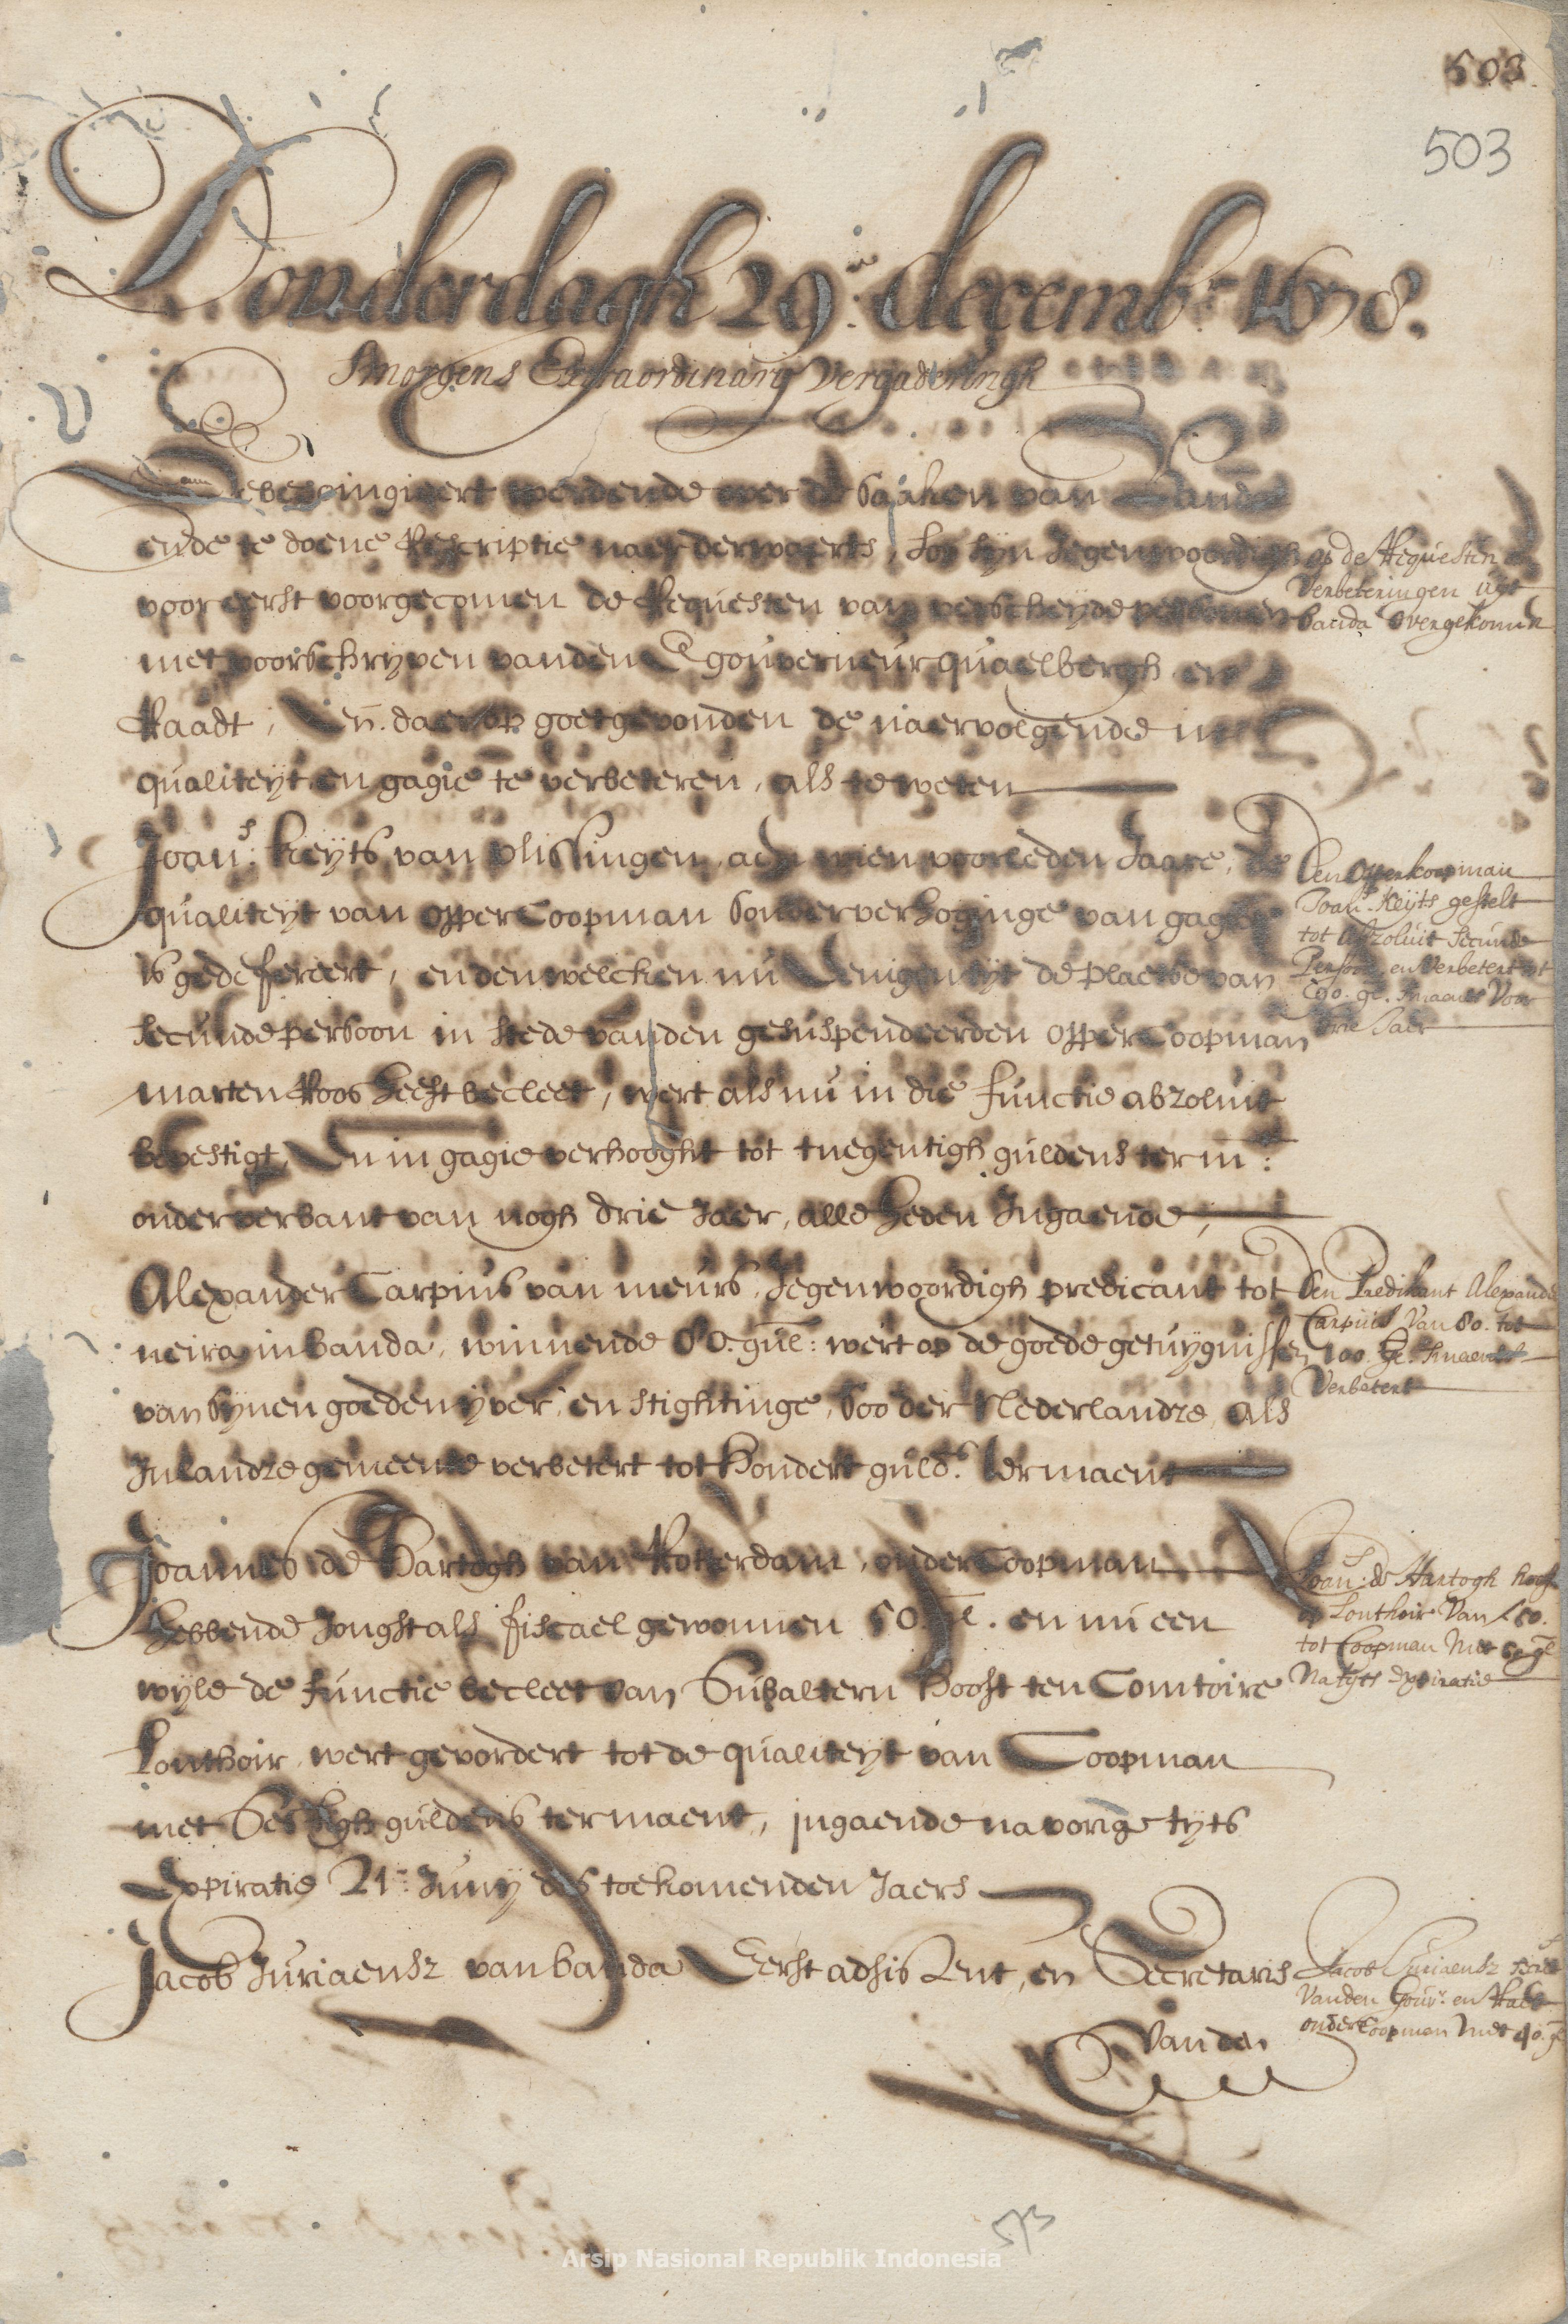 503
503
Donderdagh 29.e decemb.r 1678.
Smorgens Extraordinary Vergaderingh
werdende over de saaken van Banda
ende te doene Rescriptie naer derwaerts, soo syn Jegenwoordigh
voor eerst voorgecomen de Requesten van verscheyde persoonen
met voorschryven vanden E gouverneur quaelbergh en
Raadt, En. daer op goetgevonden de naervolgende in
qualiteyt en gagie te verbeteren, als te weten
op de Requesten
Verbeteringen uyt
banda overgekomen
Joan.s Keyts van Vlissingen, aen wien voorleden Jaare, de
qualiteyt van opperCoopman sonder verhoginge van gagie
is gedefereert, en den welcken nu Eenigen tyt de plaetse van
secunde persoon in stede vanden gesuspendeerden opper Coopman
marten Roos heeft becleet, wert als nu in die functie absoluit
bevestigt, En in gagie verhooght tot tnegentigh guldens ter m:
onder verbant van nogh drie Jaer, alle heden Ingaende,
Den opperkoopman
Joan.s Keyts gestelt
tot absoluit secunde
Persoon, en verbetert tot
90. gl. smaents voor
drie Jaer
Alexander Carpius van meurs, Jegenwoordigh predicant tot
neira in banda, winnende 80. gul: wert op de goede getuygnissen
van synen goeden yver, en stightinge, soo der Nederlandze als
Inlandze gemeente verbetert tot hondert guld.s ter maent
Den Predikant Alexand.
Carpius Van 80. tot
100. gl. smaents
Verbetert
Joannes de Hartogh van Rotterdam, onder Coopman
hebbende Jongst als fiscael gewonnen 50. gl. en nu een
wyle de functie becleet van Subaltern hooft ten Comtoire
Lonthoir, wert gevordert tot de qualiteyt van Coopman
met Sestigh guldens ter maent, ingaende na vorige tyts
Expiratie 21.e Juny des toekomenden Jaers
Joan.s de Hartogh hooft
op Lonthoir Van 50.
tot Coopman Met 60 gl
Na tyts expiratie
Jacob Juriaensz van banda Eerst adsistent, en Secretaris
vanden
Jacob Juriaensz
Vanden Gouv.r en Raet
onderCoopman Met 40. gl
Arsip Nasional Republik Indonesia